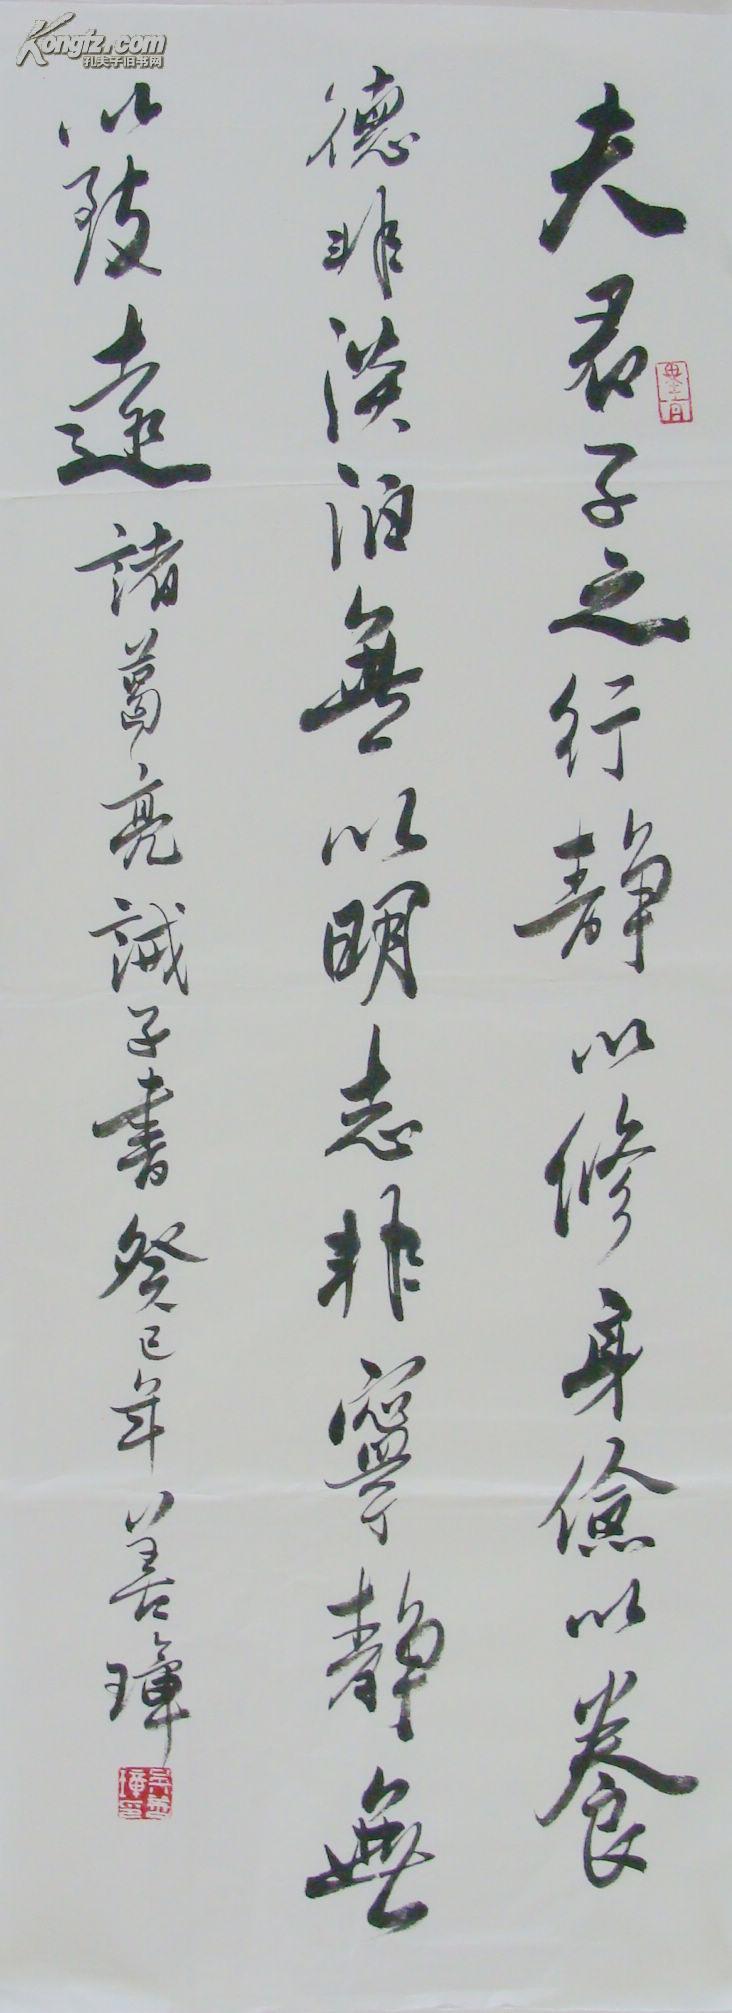 夫君子之行靜以修身儉以養
德非淡泊無以明志非寧靜無
以致遠諸葛亮誡子書癸巳年善璋
Kongfz.com
孔夫子旧书网